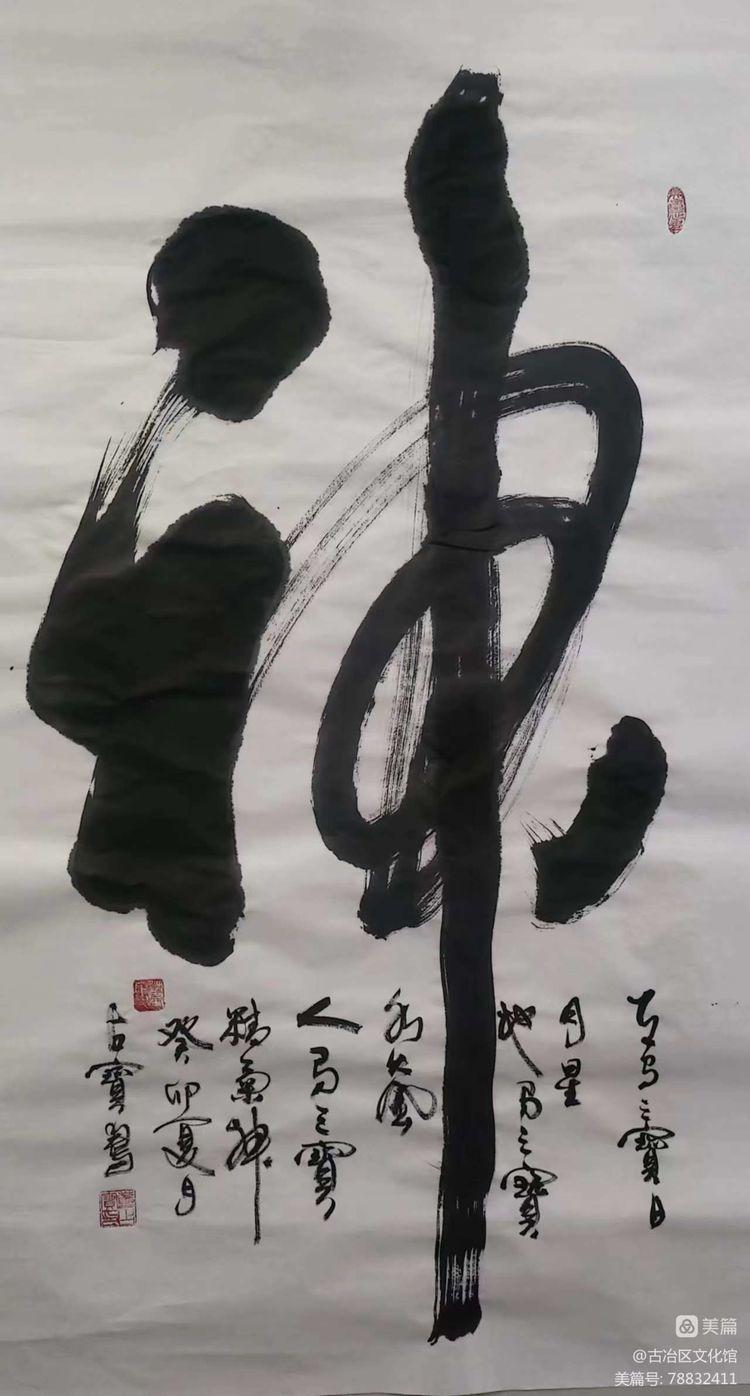 神
天有三寶日
月星
地有三寶
水火風
人有三寶
精氣神
癸卯夏月
寶
美篇
@古冶区文化馆
美篇号: 78832411